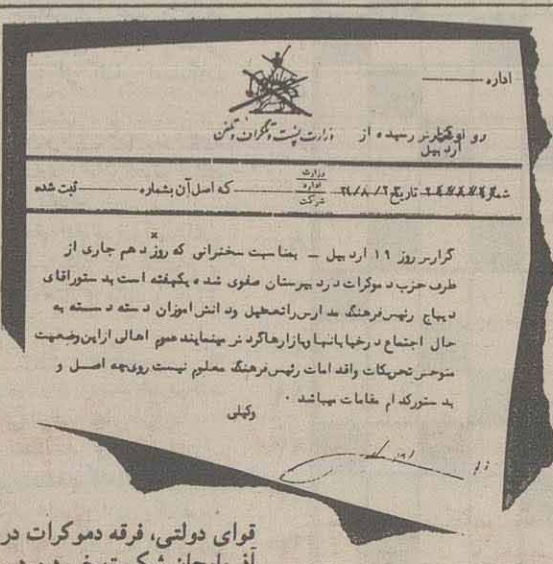 اداره
رو نوشت گزارش رسیده از
اردبیل
وزارت پست و تلگراف و تلفن
شماره تاریخ ۲۴/۸/۲ وزارت اداره شرکت که اصل آن بشماره ثبت شده
گزارش روز ۱۹ اردبیل ــ بمناسبت سخنرانی که روز دهم جاری از
طرف حزب دموکرات در دبیرستان صفوی شده یکهفته است بدستور آقای
دیباج رئیس فرهنگ مدارس را تعطیل و دانش اموزان دسته دسته به
حال اجتماع در خیابانها و بازارها گردش مینمایند عموم اهالی از این وضعیت
متوحش تحریکات و اقدامات رئیس فرهنگ معلوم نیست روی چه اصل و
بدستور کدام مقامات میباشد ۰
وکیلی
قوای دولتی، فرقه دموکرات در